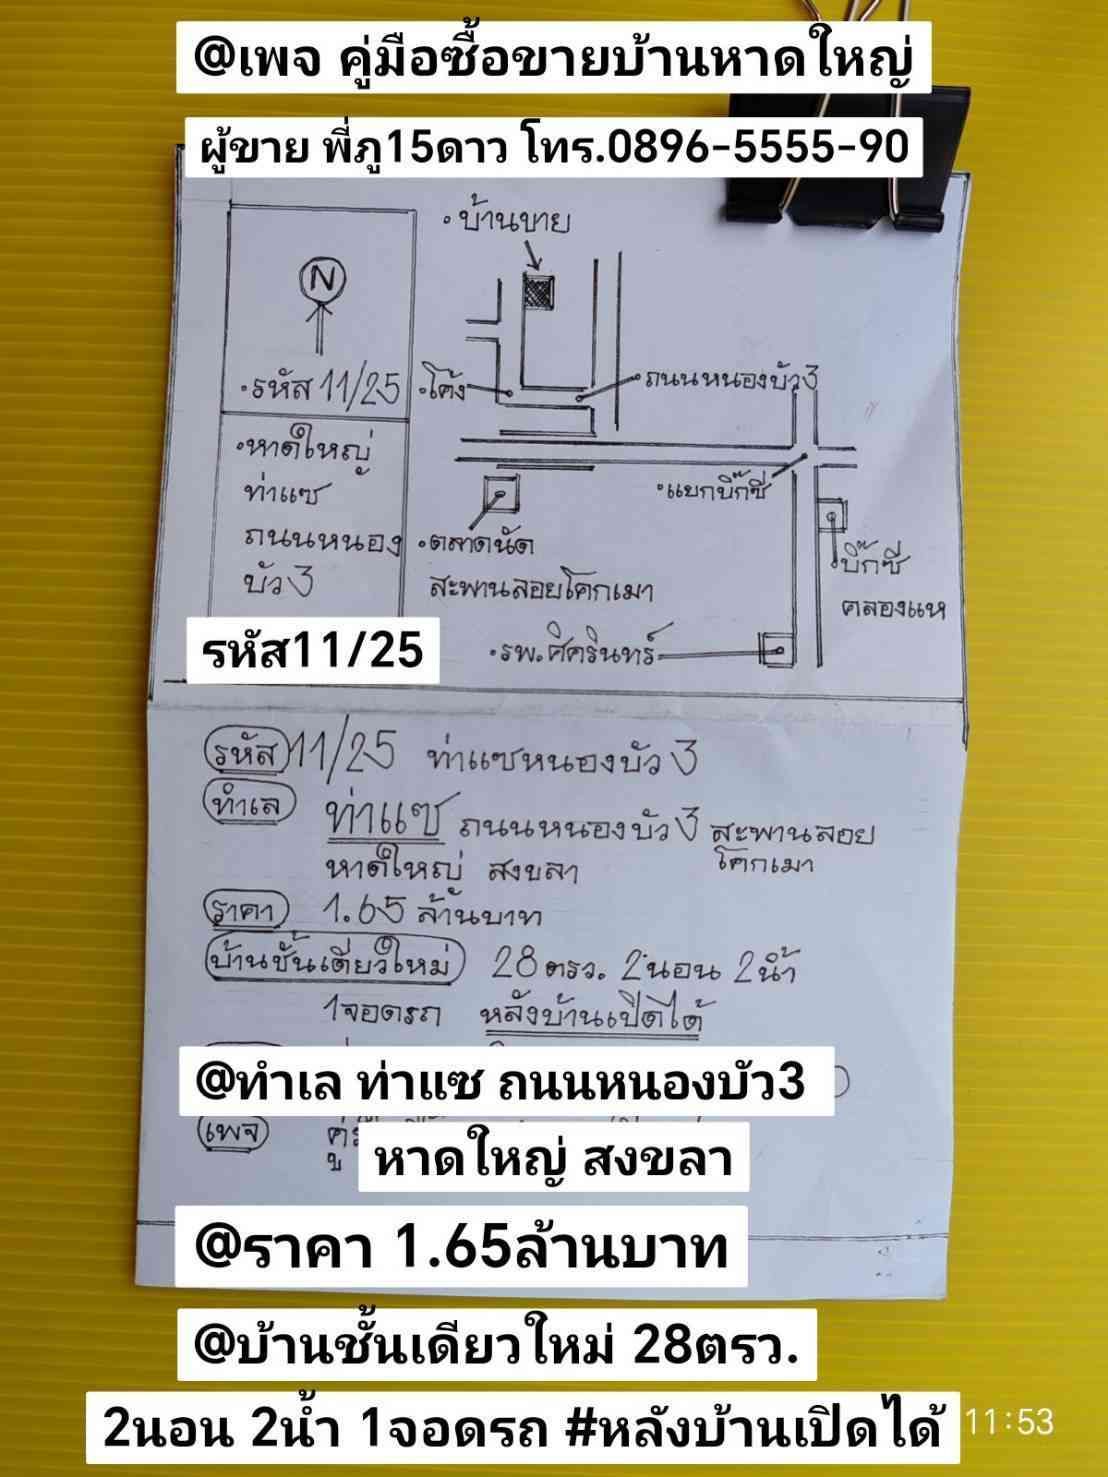 @เพจ คู่มือซื้อขายบ้านหาดใหญ่
ผู้ขาย พี่ภู15ดาว โทร.0896-5555-90
•บ้านขาย
N
•รหัส 11/25
•โค้ง
ถนนหนองบัว3
•หาดใหญ่
ท่าแซ
ถนนหนอง
บัว3
•แยกบิ๊กซี
•ตลาดนัด
สะพานลอยโคกเมา
บิ๊กซี
คลองแห
รหัส11/25
•รพ.ศิครินทร์
รหัส 11/25 ท่าแซหนองบัว3
ทำเล ท่าแซ ถนนหนองบัว3 สะพานลอย
โคกเมา
หาดใหญ่ สงขลา
ราคา 1.65 ล้านบาท
บ้านชั้นเดียวใหม่ 28ตรว. 2นอน 2น้ำ
1จอดรถ หลังบ้านเปิดได้
@ทำเล ท่าแซ ถนนหนองบัว3
เพจ
หาดใหญ่ สงขลา
@ราคา 1.65ล้านบาท
@บ้านชั้นเดียวใหม่ 28ตรว.
2นอน 2น้ำ 1จอดรถ #หลังบ้านเปิดได้
11:53